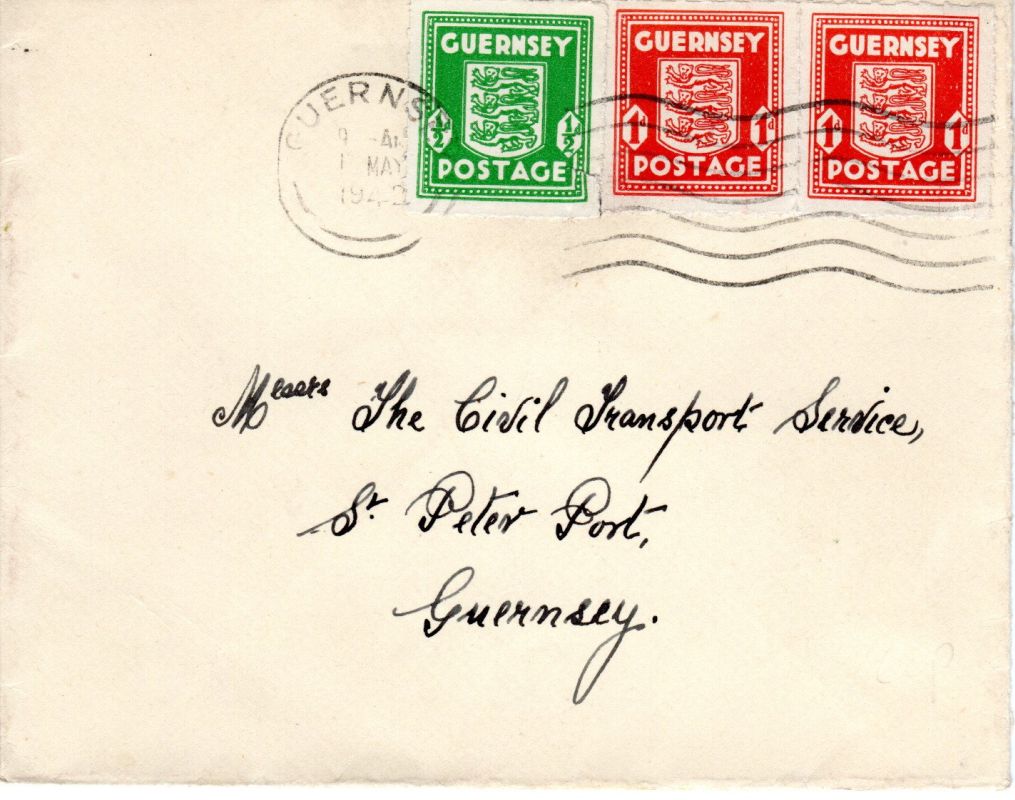 GUERNSEY
1/2 1/2
POSTAGE
GUERNSEY
1d 1d
POSTAGE
GUERNSEY
1d 1d
POSTAGE
GUERNS
MAY
1942
Messrs The Civil Transport Service,
St Peter Port,
Guernsey.